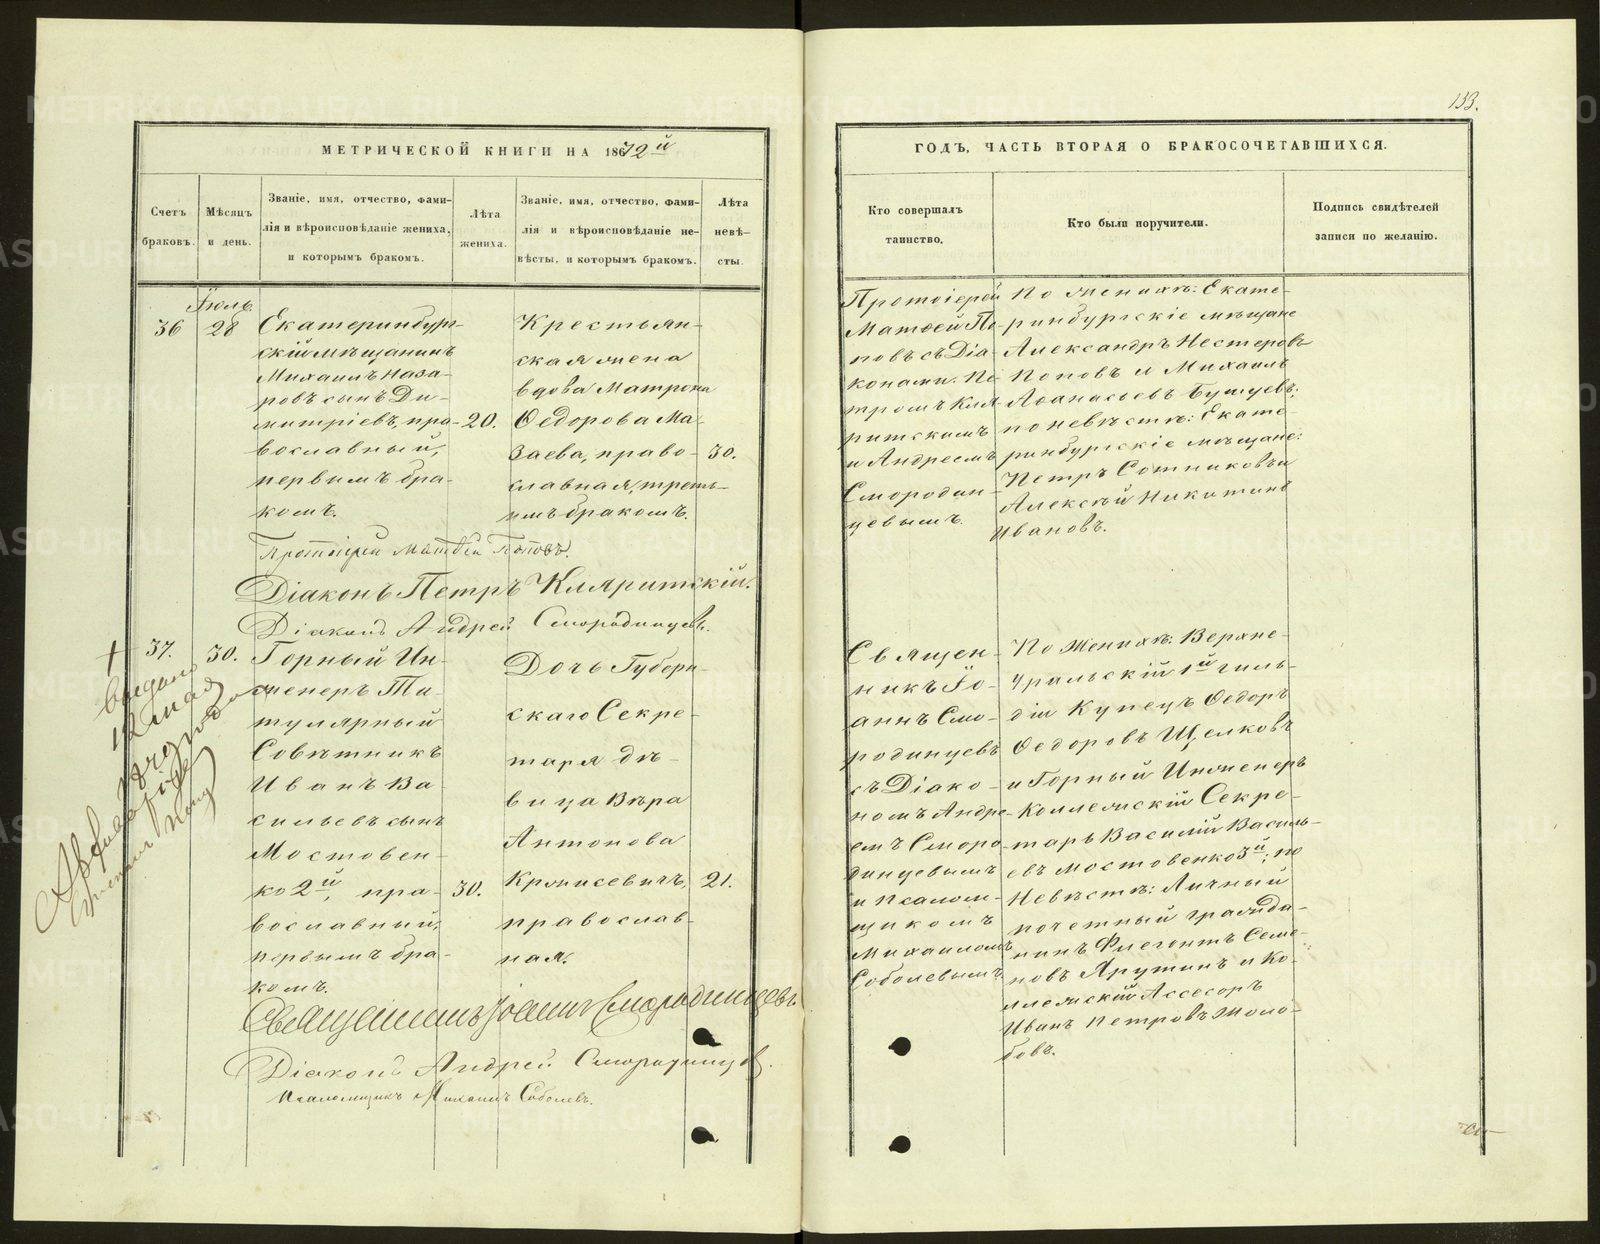 133.
МЕТРИЧЕСКОЙ КНИГИ НА 1872й
Счетъ
браковъ.
Мѣсяцъ
и день.
Званіе, имя, отчество, фами-
лія и вѣроисповѣданіе жениха,
и которымъ бракомъ.
Лѣта
жениха.
Званіе, имя, отчество, фами-
лія и вѣроисповѣданіе не-
вѣсты, и которымъ бракомъ.
Лѣта
невѣ-
сты.
Іюль
36
28
Екатеринбург-
скій мѣщанинъ
Михаилъ Наза-
ровъ сынъ Ди-
митріевъ, пра-
вославный,
первымъ бра-
комъ.
20.
Крестьян-
ская жена
вдова Матрона
Ѳедорова Ма-
заева, право-
славная, треть-
имъ бракомъ.
30.
Протоіерей Матѳей Поповъ.
Діаконъ Петръ Кляритскій.
Діаконъ Андрей Смородинцевъ.
37.
30.
Горный Ин-
женеръ Ти-
тулярный
Совѣтникъ
Иванъ Ва-
сильевъ сынъ
Мостовен-
ко 2й, пра-
вославный,
первымъ бра-
комъ.
30.
Дочь Губерн-
скаго Секре-
таря дѣ-
вица Вѣра
Антонова
Крживевичъ,
православ-
ная.
21.
Священникъ Іоаннъ Смородинцевъ
Діаконъ Андрей Смородинцевъ.
Псаломщикъ Михаилъ Соболевъ.
ГОДЪ, ЧАСТЬ ВТОРАЯ О БРАКОСОЧЕТАВШИХСЯ.
Кто совершалъ
таинство.
Кто были поручители.
Подпись свидѣтелей
записи по желанію.
Протоіерей
Матѳей По-
повъ съ Діа-
конами: Пе-
тромъ Кля-
ритскимъ
и Андреемъ
Смородин-
цевымъ.
По женихѣ: Екате-
ринбургскіе мѣщане
Александръ Нестеровъ
Поповъ и Михаилъ
Аѳанасьевъ
по невѣстѣ: Екате-
ринбургскіе мѣщане:
Петръ Сотниковъ и
Алексѣй Никитинъ
Ивановъ.
Священ-
никъ Іо-
аннъ Смо-
родинцевъ
съ Діако-
номъ Андре-
емъ Сморо-
динцевымъ
и Псалом-
щикомъ
Михаиломъ
Соболевымъ.
По Женихѣ: Верхне-
уральскій 1й гиль-
діи Купецъ Ѳедоръ
Ѳедоровъ Щелковъ
и Горный Инженеръ
Коллежскій Секре-
тарь Василій Василь-
евъ Мостовенко 3й; по
Невѣстѣ: Личный
почетный гражда-
нинъ Флегонтъ Семе-
новъ Ярутинъ и Ко-
ллежскій Ассесоръ
Иванъ Петровъ Моло-
бовъ.
METRIKI.GASO-URAL.RU